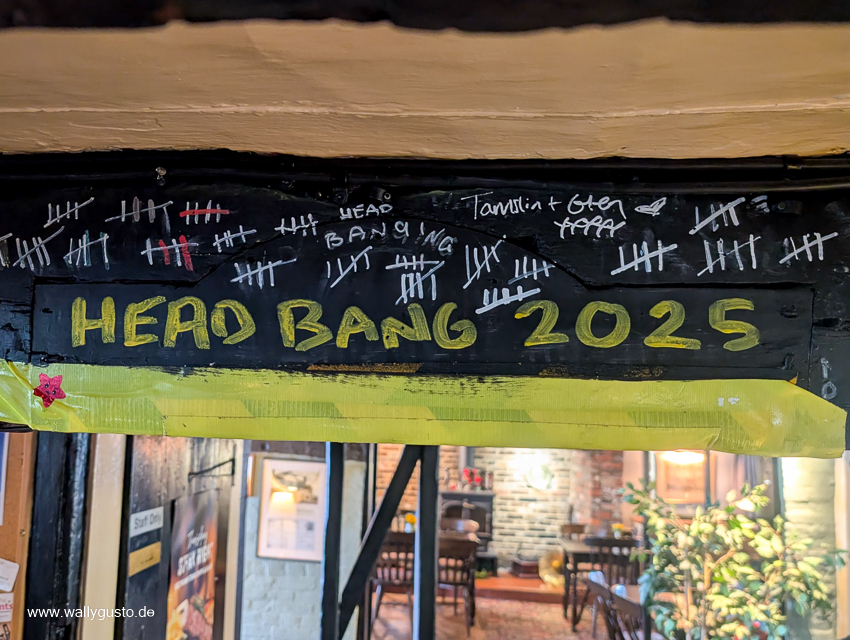 HEAD
BANGING
Tamslin + Gten
HEAD BANG 2025
Staff Only
www.wallygusto.de